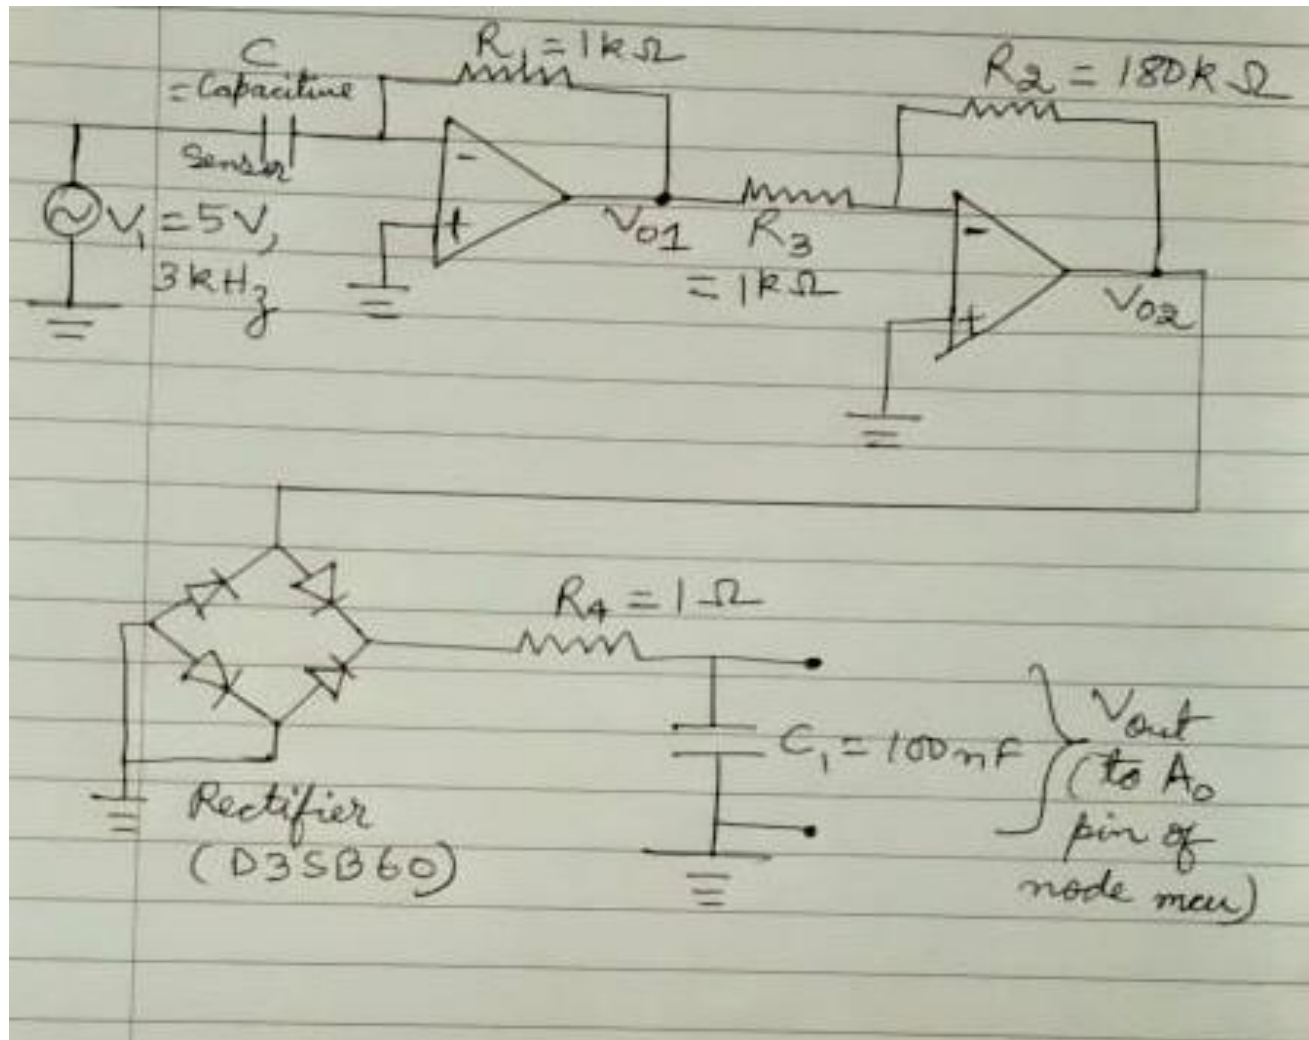 C
= Capacitive
Sensor
R1 = 1kΩ
R2 = 180kΩ
-
+
V1 = 5V,
3kHz
V01
R3
= 1kΩ
-
+
V02
R4 = 1Ω
C1 = 100nF
Vout
(to A0
pin of
node mcu)
Rectifier
(D3SB60)